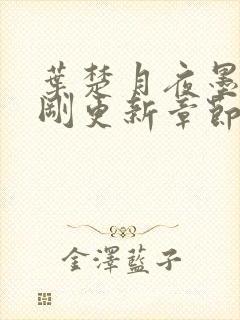 葉楚月夜墨
剛更新章節
金澤藍子